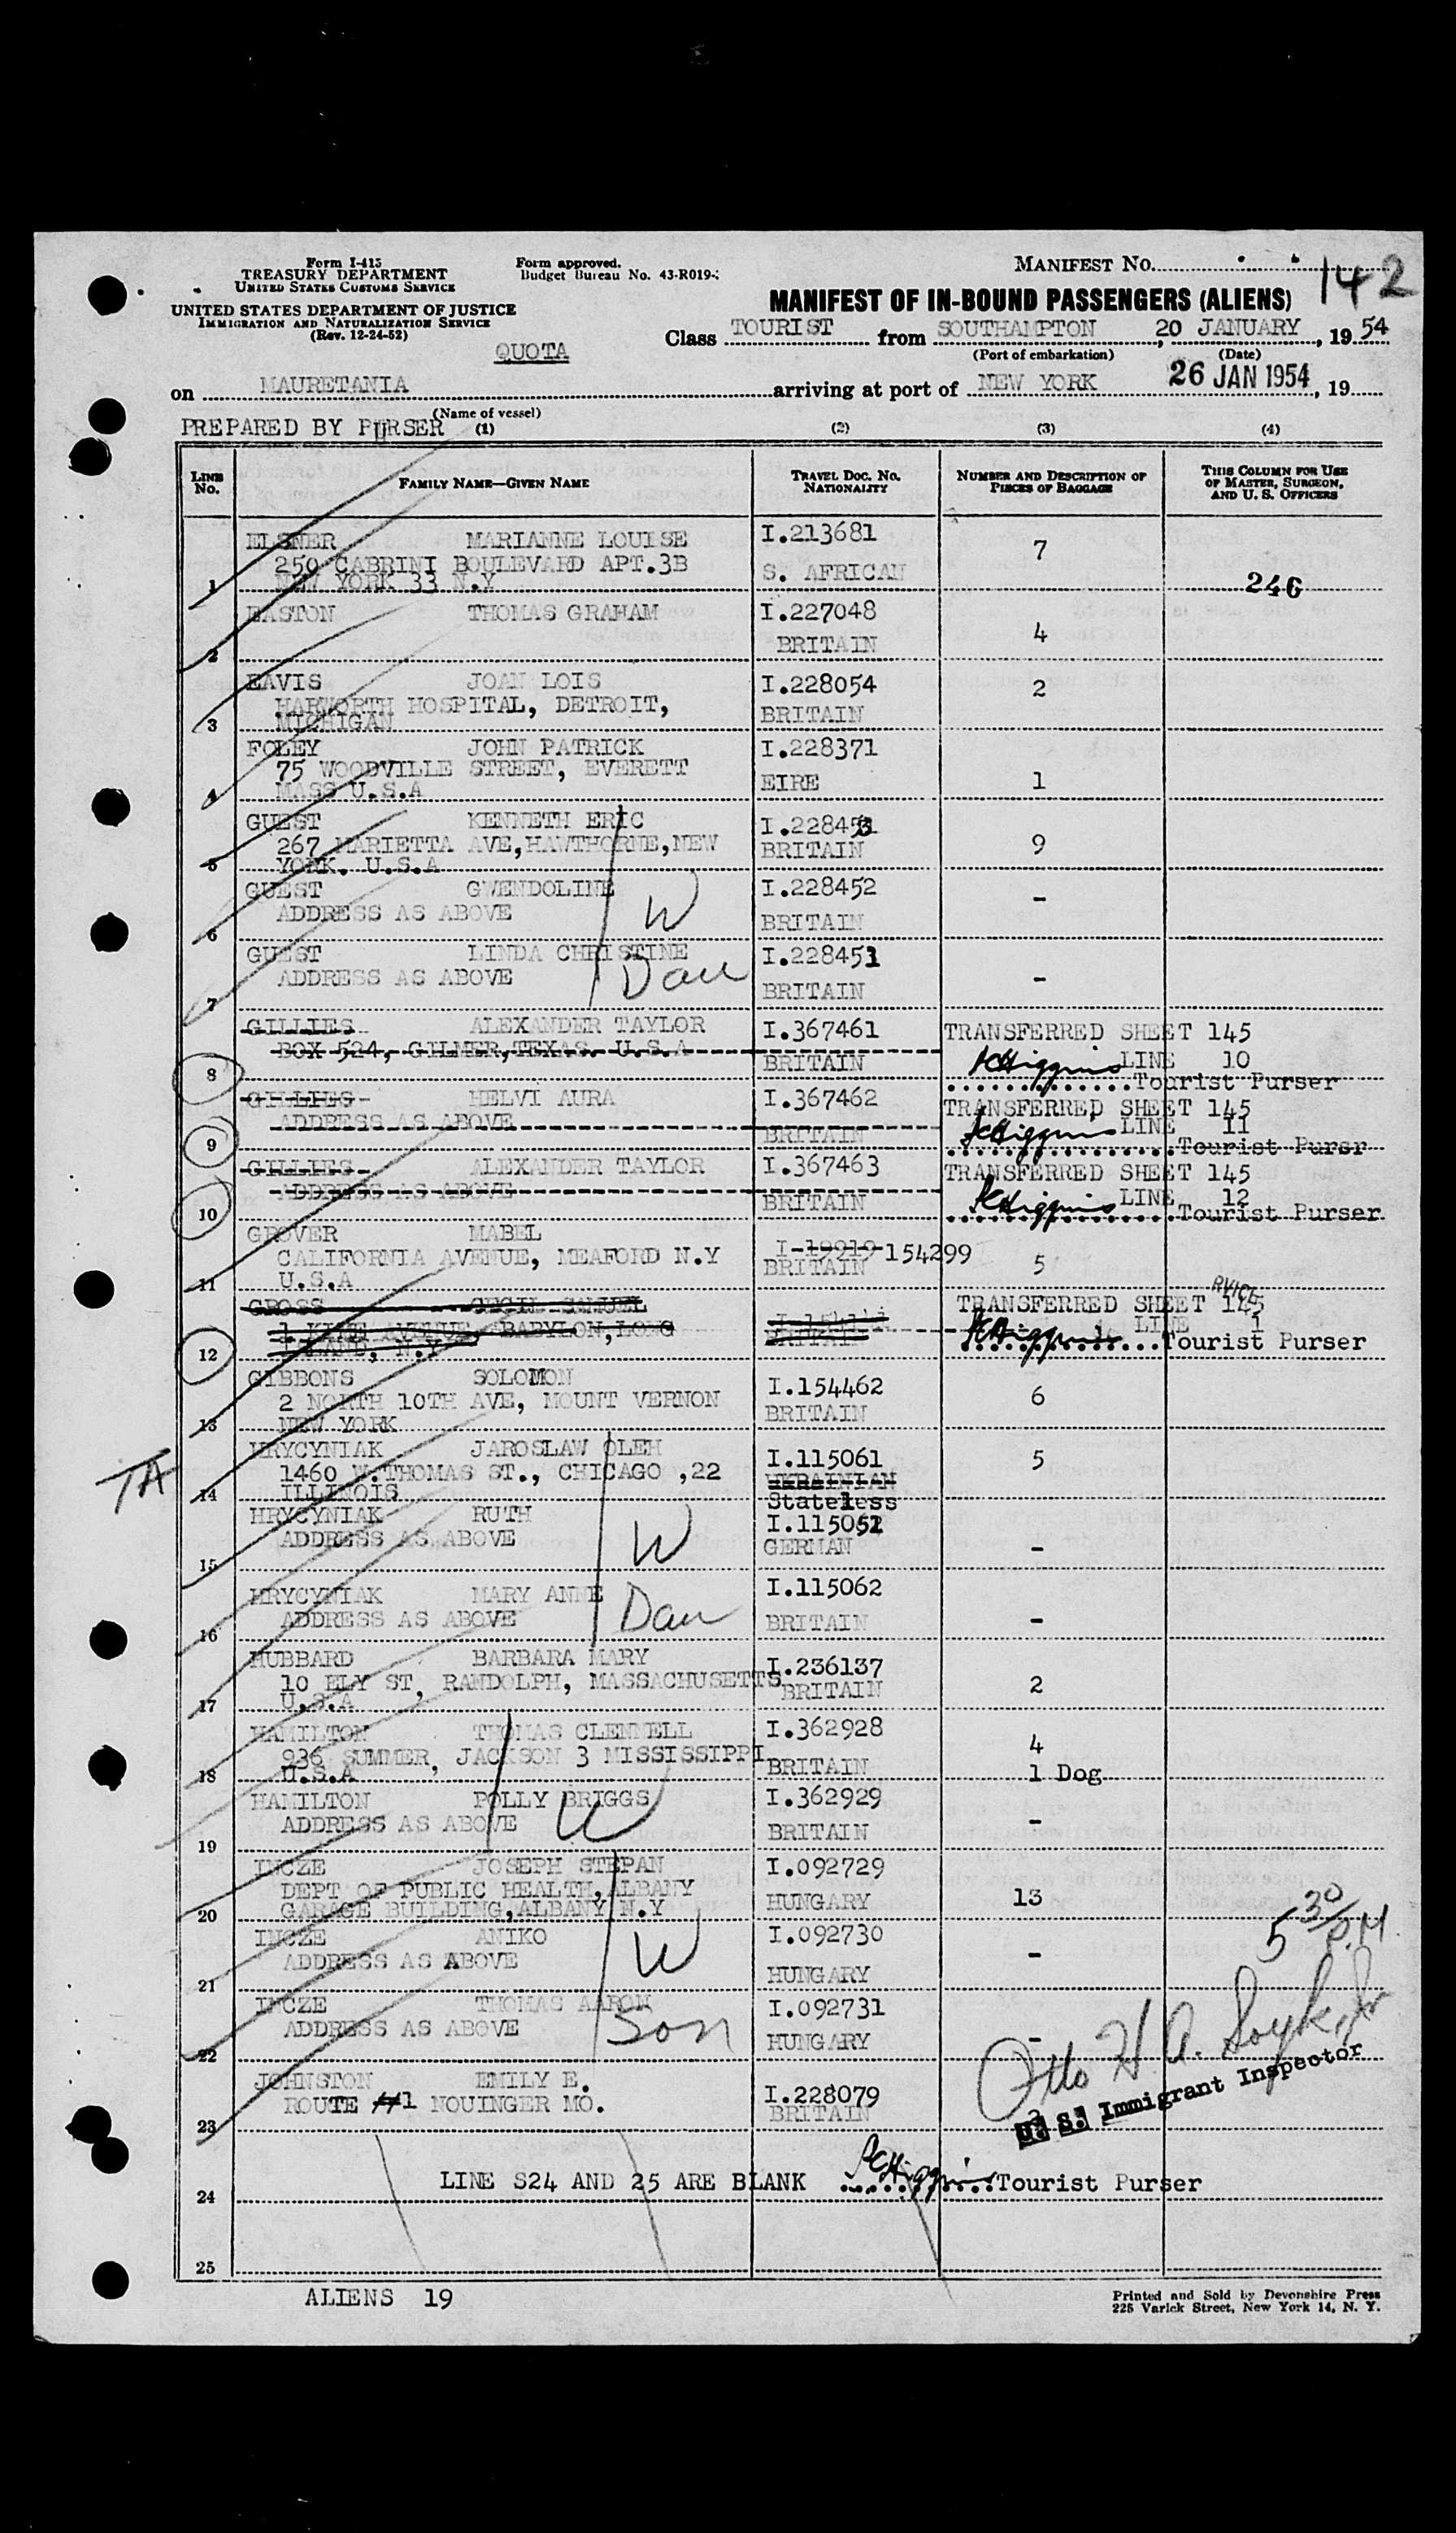 Form I-415
TREASURY DEPARTMENT
UNITED STATES CUSTOMS SERVICE
UNITED STATES DEPARTMENT OF JUSTICE
IMMIGRATION AND NATURALIZATION SERVICE
(Rev. 12-24-52)
Form approved.
Budget Bureau No. 43-R019-
QUOTA
MANIFEST NO. 142
MANIFEST OF IN-BOUND PASSENGERS (ALIENS)
Class TOURIST from SOUTHAMPTON, 20 JANUARY, 1954
(Port of embarkation) (Date)
on MAURETANIA arriving at port of NEW YORK 26 JAN 1954, 19
(Name of vessel)
PREPARED BY PURSER (1) (2) (3) (4)
LINE No. FAMILY NAME—GIVEN NAME TRAVEL DOC. NO. NATIONALITY NUMBER AND DESCRIPTION OF PIECES OF BAGGAGE THIS COLUMN FOR USE OF MASTER, SURGEON, AND U. S. OFFICERS
ELSNER MARIANNE LOUISE I.213681 7
250 CABRINI BOULEVARD APT.3B S. AFRICAN
1 NEW YORK 33 N.Y 246
EASTON THOMAS GRAHAM I.227048 4
2 BRITAIN
EAVIS JOAN LOIS I.228054 2
HARWORTH HOSPITAL, DETROIT, BRITAIN
3 MICHIGAN
FOLEY JOHN PATRICK I.228371
75 WOODVILLE STREET, EVERETT EIRE 1
4 MASS U.S.A
GUEST KENNETH ERIC I.22845
267 MARIETTA AVE,HAWTHORNE,NEW BRITAIN 9
5 YORK. U.S.A
GUEST GWENDOLINE I.228452
ADDRESS AS ABOVE W BRITAIN -
6
GUEST LINDA CHRISTINE I.228451
ADDRESS AS ABOVE Dau BRITAIN -
7
GILLIES ALEXANDER TAYLOR I.367461 TRANSFERRED SHEET 145
BOX 524, GILMER,TEXAS. U.S.A BRITAIN LINE 10
8 KHiggins Tourist Purser
GILLIES HELVI AURA I.367462 TRANSFERRED SHEET 145
ADDRESS AS ABOVE BRITAIN LINE 11
9 KHiggins Tourist Pursr
GILLIES ALEXANDER TAYLOR I.367463 TRANSFERRED SHEET 145
ADDRESS AS ABOVE BRITAIN LINE 12
10 KHiggins Tourist Purser
GROVER MABEL I-19919-154299
CALIFORNIA AVENUE, MEAFORD N.Y BRITAIN 5
11 U.S.A
GROSS CECIL SAMUEL TRANSFERRED SHEET 145
1 KINE AVENUE, BABYLON,LONG BRITAIN LINE 1
12 ISLAND, N.Y KHiggins Tourist Purser
RVICE
GIBBONS SOLOMON I.154462 6
2 NORTH 10TH AVE, MOUNT VERNON BRITAIN
13 NEW YORK
HRYCYNIAK JAROSLAW OLEH I.115061 5
1460 W.THOMAS ST., CHICAGO ,22 UKRAINIAN
TA 14 ILLINOIS Stateless
HRYCYNIAK RUTH I.11506
ADDRESS AS ABOVE W GERMAN -
15
HRYCYNIAK MARY ANNE I.115062
ADDRESS AS ABOVE Dau BRITAIN -
16
HUBBARD BARBARA MARY I.236137
10 ELY ST, RANDOLPH, MASSACHUSETTS BRITAIN 2
17 U.S.A
HAMILTON THOMAS CLENNELL I.362928 4
936 SUMMER, JACKSON 3 MISSISSIPPI BRITAIN 1 Dog
18 U.S.A
HAMILTON POLLY BRIGGS I.362929
ADDRESS AS ABOVE W BRITAIN -
19
INCZE JOSEPH STEPAN I.092729
DEPT OF PUBLIC HEALTH,ALBANY HUNGARY 13
20 GARAGE BUILDING,ALBANY N.Y
INCZE ANIKO I.092730
ADDRESS AS ABOVE W HUNGARY - 5 30/P.M.
21
INCZE THOMAS AARON I.092731
ADDRESS AS ABOVE Son HUNGARY -
22
Otto H A. Soyk, Jr
U. S. Immigrant Inspector
JOHNSTON EMILY E. I.228079
ROUTE #1 NOUINGER MO. BRITAIN
23
LINE S24 AND 25 ARE BLANK KHiggins Tourist Purser
24
25
ALIENS 19
Printed and Sold by Devonshire Press
225 Varick Street, New York 14, N. Y.